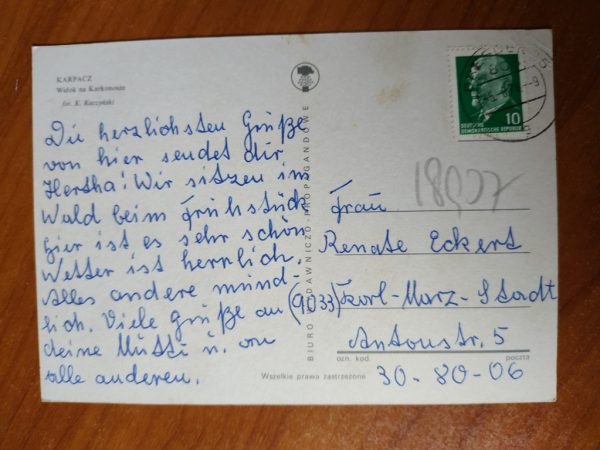 KARPACZ
Widok na Karkonosze
fot. K. Kaczyński
Die herzlichsten Grüße
von hier sendet dir
Hertha! Wir sitzen im
Wald beim Frühstück
hier ist es sehr schön
Wetter ist herrlich.
Alles andere münd-
lich. Viele Grüße an
deine Mutti u. an
alle anderen.
BIURO WYDAWNICZO-PROPAGANDOWE
10
DEUTSCHE
DEMOKRATISCHE REPUBLIK
Frau
Renate Eckert
(9033) Karl-Marx-Stadt
Antonstr. 5
ozn. kod.
poczta
30-80-06
Wszelkie prawa zastrzeżone